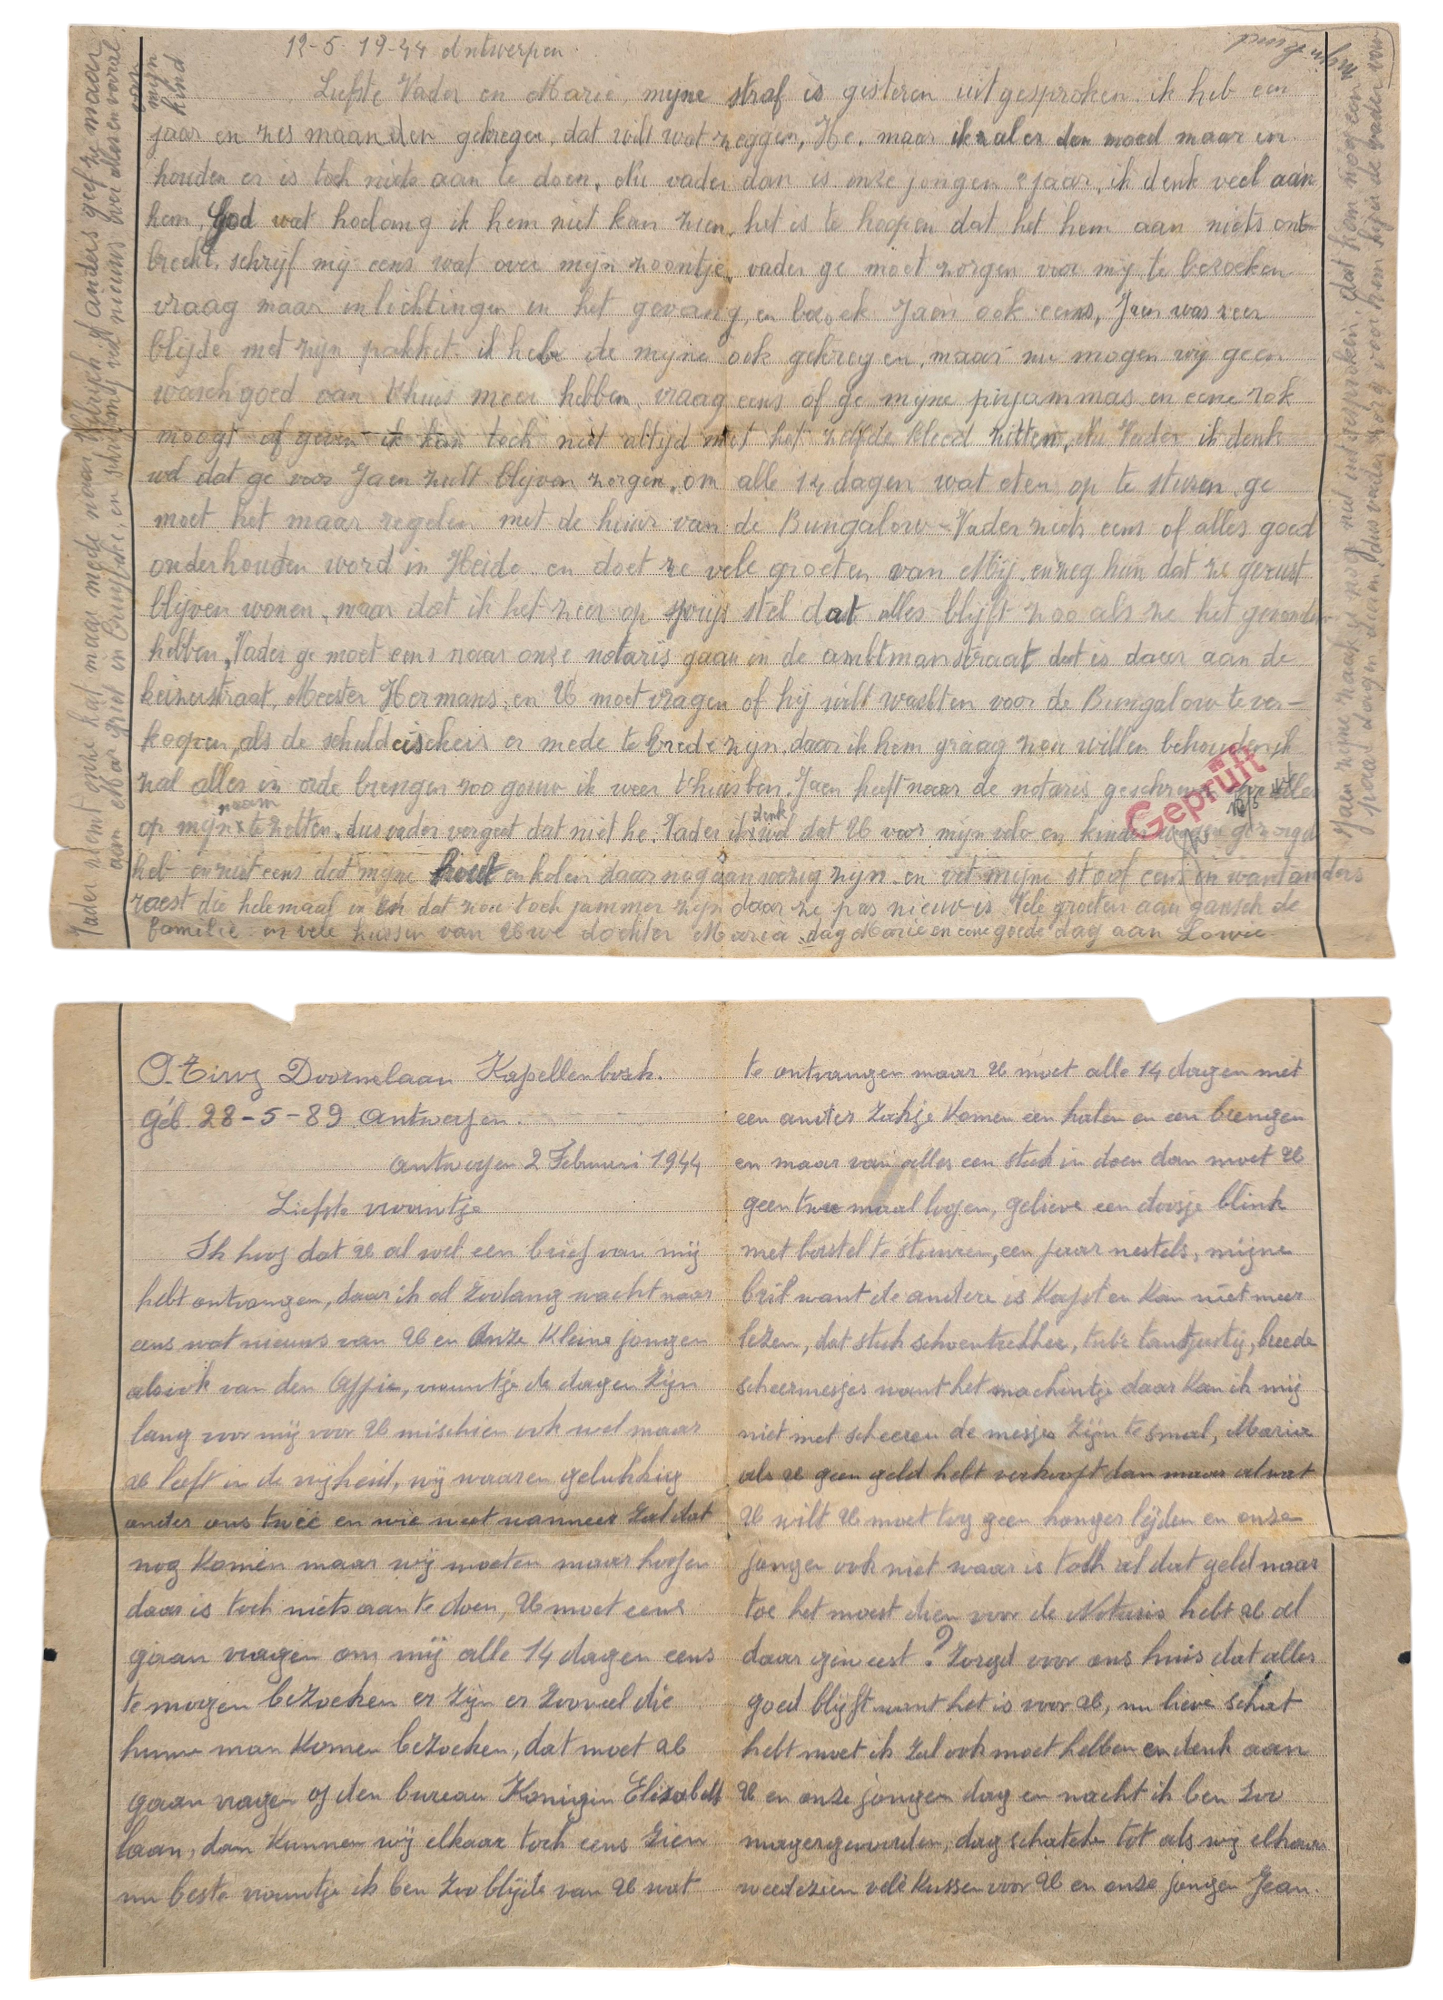 12-5-19-44 Antwerpen
Liefste Vader en Marie, myne straf is gisteren uitgesproken. ik heb een
jaar en zes maanden gekregen, dat wilt wat zeggen, He. maar ik zal er den moed maar in
houden er is toch niets aan te doen. Nu vader dan is onze jongen jaar, ik denk veel aan
hem, God wat hoelang ik hem niet kan zien. het is te hoopen dat het hem aan niets ont-
breekt, schrijf mij eens wat over mijn zoontje, vader ge moet zorgen voor mij te bezoeken
vraag maar inlichtingen in het gevang, en bezoek Jaen ook eens, Jaen was zeer
blijde met zijn pakket. ik heb de mijne ook gekregen, maar nu mogen wij geen
waschgoed van thuis meer hebben, vraag eens of ge mijne pijammas en eene rok
moogt af geven ik kan toch niet altijd met het zelfde kleed zitten, Nu Vader ik denk
wel dat ge voor Jaen zult blijven zorgen, om alle 14 dagen wat eten op te sturen ge
moet het maar regelen met de huur van de Bungalow - Vader ziets eens of alles goed
onderhouden word in Heide. en doet ze vele groeten van Mij. en zeg hun dat ze gerust
blijven wonen, maar dat ik het zeer op prijs stel dat alles blijft zoo als ze het gevonden
hebben, Vader ge moet eens naar onze notaris gaan in de ambtmanstraat dat is daar aan de
keizerstraat, Meester Hermans, en U moet vragen of hij wilt wachten voor de Bungalow te ver-
koopen, als de schuldeischers er mede te vrede zijn, daar ik hem graag zou willen behouden, ik
zal alles in orde brengen zoo gouw ik weer thuis ben. Jaen heeft naar de notaris geschreven alles
op mijn naam te zetten, dus vader vergeet dat niet he. Vader ik denk wel dat U voor mijn velo en kinder gezorgd
heb en ziet eens dat mijne hout en kolen daar nog aanwezig zijn. en vet mijne stoof eens in want anders
roest die helemaal in en dat zou toch jammer zijn daar ze pas nieuw is. Vele groeten aan gansch de
familie en vele kussen van Uwe dochter Maria, dag Marie en eene goede dag aan Lowie
Vader Neemt onze kat maar mede naar of anders geef ze maar
aan Margriet in , en schrijf mij veel nieuws over alles en vooral
over
mijn
kind
Jaen zijne zaak is nog niet uitgesproken, dat kan nog een
paar dagen duren, dus vader zorg voor hem lijk de vader voor
mijn kind
Geprüft
O. Tirez Doornelaan Kapellenbosch.
Géb. 28-5-89 Antwerpen.
Antwerpen 2 Februari 1944
Liefste vrouwtje
Ik hoop dat U al wel een brief van mij
hebt ontvangen, daar ik al zoolang wacht naar
eens wat nieuws van U en Onze Kleine jongen
alsook van den Appie, vrouwtje de dagen zijn
lang voor mij voor U mischien ook wel maar
U leeft in de vrijheid, wij waaren gelukkig
onder ons tweë en wie weet wanneer zal dat
nog Komen maar wij moeten maar hopen
daar is toch niets aan te doen, U moet eens
gaan vragen om mij alle 14 dagen eens
te mogen bezoeken er zijn er zooveel die
hunne man Komen bezoeken, dat moet U
gaan vragen op den bureau Konigin Elisabeth
laan, dan Kunnen wij elkaar toch eens zien
nu beste vrouwtje ik ben zoo blijde van U wat
te ontvangen maar U moet alle 14 dagen met
een ander zakje Komen een halen en een brengen
en maar van alles een stuk in doen dan moet U
geen twee maal loopen, gelieve een doosje blink
met borstel te stuuren, een paar nestels, mijne
bril want de andere is Kapot en Kan niet meer
lezen, dat stuk schoentrekker, tube tandpasty, breede
scheermesjes want het machintje daar Kan ik mij
niet met scheeren de mesjes zijn te smal, Maria
als U geen geld hebt verkooft dan maar al wat
U wilt U moet tog geen honger lijden en onze
jongen ook niet waar is toch al dat geld naar
toe het moest dien voor de Notaris hebt U al
daar gineest? Zorgd voor ons huis dat alles
goed blijft want het is voor U, nu lieve schat
hebt moet ik zal ook moet hebben en denk aan
U en onze jongen dag en nacht ik ben zoo
magergeworden, dag schateke tot als wij elkaar
weederzien vele Kussen voor U en onze jongen Jean.